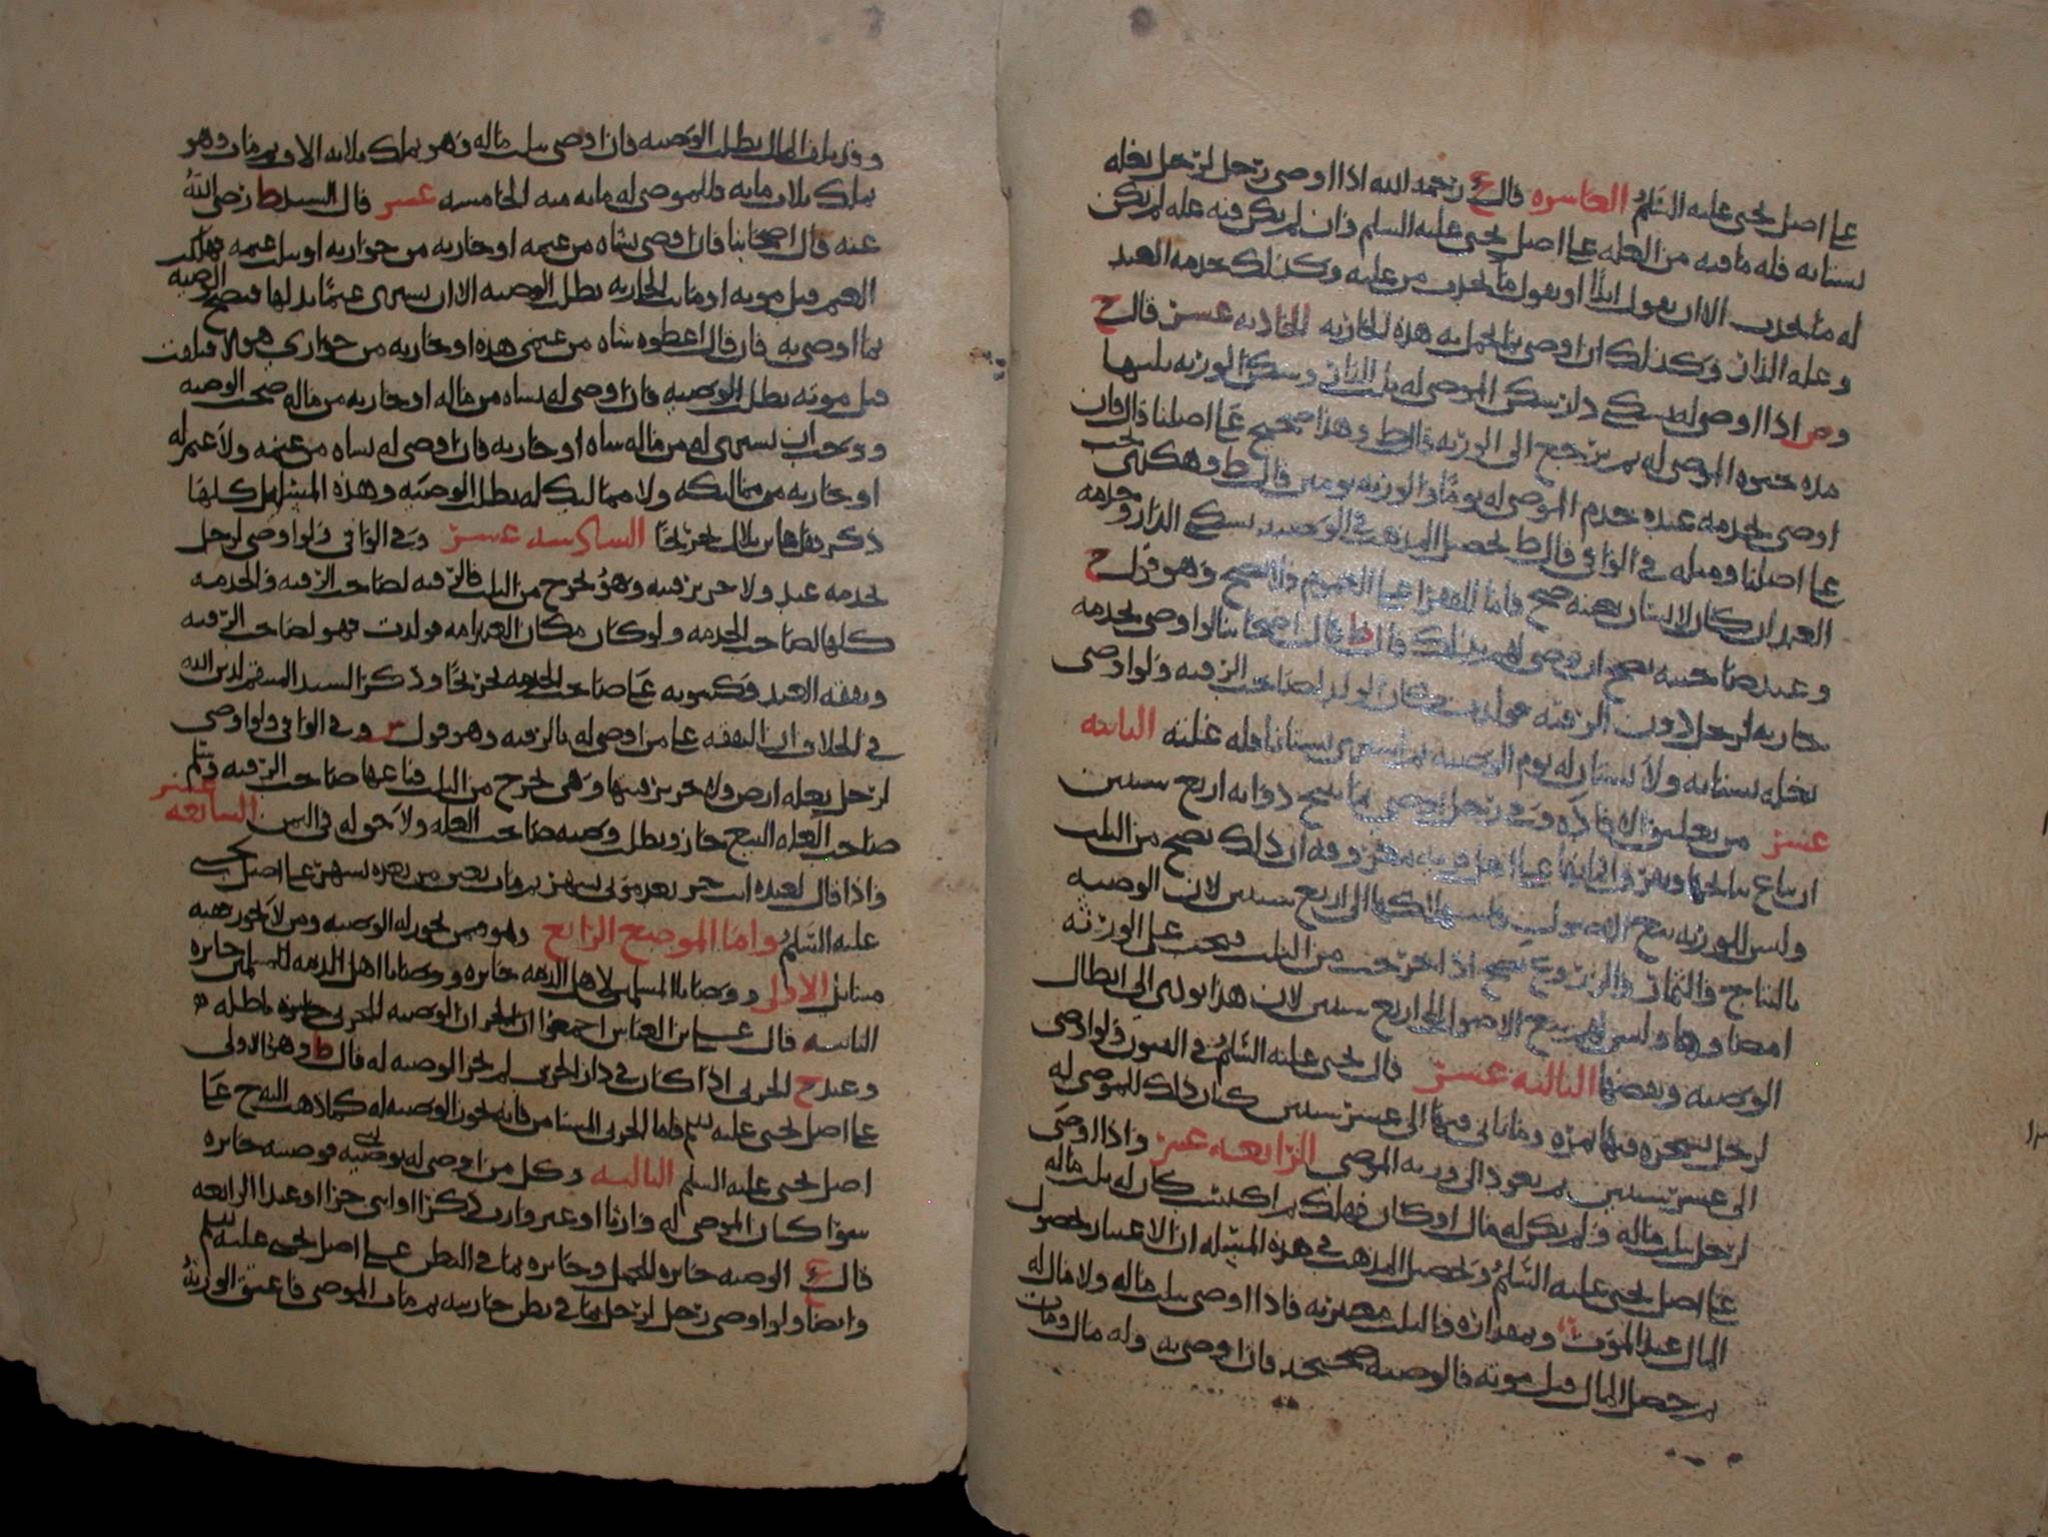 على اصل يحيى عليه السلم العاشره قال ع رحمه الله اذا اوصى رجل لرجل بغله
بستانه فله ما فيه من الغله على اصل يحيى عليه السلم فان لم يكن فيه غله لم يكن
له ما يحدث الا ان يقول ابدا او يقول ما يحدث من غلته وكذلك خدمه العبد
وغله الدار وكذلك ان اوصى بما تحمل به هذه الجاريه الحاديه عشر قال ح
وص اذا اوصى له بسكنى دار سكن الموصى له ثلث الدار وسكن الورثه ثلثيها
مده حيوه الموصى له ثم يرجع الى الورثه قال ط وهذا صحيح على اصلنا قال فان
اوصى بخدمه عبده خدم الموصى له يوما والورثه يومين قال ط وهكذى يجب
على اصلنا ومثله في الوافي قال ط تحصيل المذهب في الوصيه بسكنى الدار وخدمه
العبد ان كان لانسان بعينه صح فاما للفقرا على العموم فلا يصح وهو قول ح
وعند صاحبيه يصح ان يوصى لهم بذلك قال ط قال اصحابنا لو اوصى بخدمه
جاريه لرجل دون الرقبه فولدت كان الولد لصاحب الرقبه ولو اوصى
بغله بستانه ولا بستان له يوم الوصيه ثم اشترى بستانا فله غلته الثانيه
عشر من تعليق الافاده وفي رجل اوصى بما ينتج دوابه اربع سنين
ان يباع نتاجها وثمر واثمانها على اهل قريه معروفه ان ذلك يصح من الثلث
وليس للورثه بيع الاصول استهلاكها الى اربع سنين لان الوصيه
بالنتاج والثمار والزروع تصح اذا خرجت من الثلث فيجب على الورثه
امضاوها وليس لهم بيع الاصول الى اربع سنين لان هذا يودي الى ابطال
الوصيه وبعضها الثالثه عشر قال يحيى عليه السلم في الفنون ولو اوصى
لرجل بشجره فيها ثمره وما ياتي فيها الى عشر سنين كان ذلك للموصى له
الى عشر سنين ثم يعود الى ورثه الموصي الرابعه عشر واذا اوصى
لرجل بثلث ماله ولم يكن له مال او كان فهلك ثم اكتسب كان له ثلث ماله
على اصل يحيى عليه السلم وتحصيل المذهب في هذه المسئله ان الاعتبار بحصول
المال عند الموت وبمقداره فالثلث معتبر به فاذا اوصى بثلث ماله ولا مال له
ثم حصل المال قبل موته فالوصيه صحيحه فان اوصى به وله مال ومات
وقد تلف المال بطلت الوصيه فان اوصى بثلث ماله وهو يملك ثلاثه الاف ثم مات وهو
يملك ثلاث مايه فللموصى له مايه منه الخامسه عشر قال السيد ط رضي الله
عنه قال اصحابنا فان اوصى بشاه من غنمه او جاريه من جواريه او بثلث غنمه فهلكت
الغنم قبل موته او ماتت الجاريه بطلت الوصيه الا ان يشتري غنما بدلها فتصح الوصيه
بما اوصى به فان قال اعطوه شاه من غنمي هذه او جاريه من جواري هولا فتلفت
قبل موته بطلت الوصيه فان اوصى له بشاه من ماله او جاريه من ماله صحت الوصيه
ووجب ان يشترى له من ماله شاه او جاريه فان اوصى له بشاه من غنمه ولا غنم له
او جاريه من مماليكه ولا مماليك له بطلت الوصيه وهذه المسايل كلها
ذكر بقلها بن بلال تخريجا السادسه عشر وفي الوافي ولو اوصى لرجل
بخدمه عبد ولاخر برقبته وهو يخرج من الثلث فالرقبه لصاحب الرقبه والخدمه
كلها لصاحب الخدمه ولو كان مكان العبد امه فولدت فهو لصاحب الرقبه
ونفقه العبد وكسوته على صاحب الخدمه تخريجا وذكر السيد المستقر لدين الله
في الخلاف ان النفقه على من اوصى له بالرقبه وهو قول س وفي الوافي ولو اوصى
لرجل بغله ارض ولاخر برقبتها وهي تخرج من الثلث فباعها صاحب الرقبه وسلم
صاحب الغله البيع جاز وبطلت وصيه صاحب الغله ولا حق له في الثمن السابعه عشر
واذا قال لعبده انت حر بعد موتي بشهر ثم مات يعتق من بعده بشهر على اصل يحيى
عليه السلم واما الموضع الرابع وهو فيمن تجوز له الوصيه ومن لا تجوز ففيه
مسايل الاولى ووصايا المسلمين لاهل الذمه جايزه ووصايا اهل الذمه للمسلمين جايزه
الثانيه قال ابو العباس اجمعوا ان الوصيه للحربي باطله
وعند ح الحربي اذا كان في دار الحرب لم تجز الوصيه له قال ط وهو الاولى
على اصل يحيى عليه السلم فاما الحربي المستامن فانه تجوز الوصيه له كما ذهب اليه ح على
اصل يحيى عليه السلم الثالثه وكل من اوصي له بوصيه فوصيته جايزه
سوا كان الموصى له وارثا او غير وارث ذكرا او انثى حرا او عبدا الرابعه
قال ع الوصيه جايزه للحمل وجايزه بما في البطن على اصل يحيى عليه السلم
وايضا ولو اوصى رجل لرجل بما في بطن جاريته ثم مات الموصي فاعتق الورثه